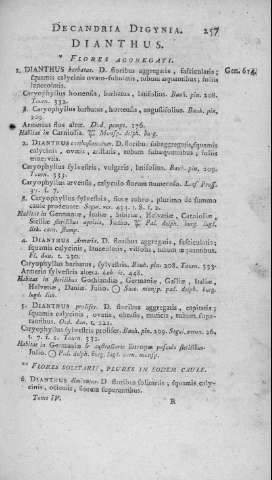 DECANDRIA DIGYNIA. 257
DIANTHUS.
* FLORES AGGREGATI.
1. DIANTHUS barbatus. D. floribus aggregatis, fasciculatis; Gen. 674.
squamis calycinis ovato-subulatis, tubum aequantibus, foliis
lanceolatis.
Caryophyllus hortensis, barbatus, latifolius. Bauh. pin. 208.
Tourn. 332.
β. Caryophyllus barbatus, hortensis, angustifolius. Bauh. pin.
209.
Armerius flos alter. Dod. pempt. 176.
Habitat in Carniolia.
2. DIANTHUS carthusianorum. D. floribus subaggregatis, squamis
calycinis, ovatis, aristatis, tubum subaequantibus, foliis
trinerviis.
Caryophyllus sylvestris, vulgaris, latifolius. Bauh. pin. 209.
Tourn. 333.
Caryophyllus arvensis, calyculo florum numerosa.
37. f. 7.
β. Caryophyllus sylvestris, flore rubro, plurimo de summo
caule prodeunte. Segu. ver. 434. t. 8. f. 2.
Habitat in Germaniae, Italiae, Helvetiae,
Siciliae sterilibus apricis, Julio. Pal. dulph. burg.
4. DIANTHUS Armeria. D. floribus aggregatis, fasciculatis;
squamis calycinis, lanceolatis, villosis, tubum aequantibus.
Fl. dan. t. 230.
Caryophyllus barbatus, sylvestris. Bauh. pin. 208. Tourn. 333.
Armeria sylvestris altera. Lob. ic. 448.
Habitat in sterilibus Gothlandiae, Germaniae, Galliae, Italiae,
Helvetiae, Daniae. Julio.
lugd. lith.
5. DIANTHUS prolifer. D. floribus aggregatis, capitatis;
squamis calycinis, ovatis, obtusis, muticis, tubum supe-
rantibus. Oed. dan. t. 221.
Caryophyllus sylvestris prolifer. Bauh. pin. 209. Segu. veron. 26.
t. 7. f. 1. Tourn. 332.
Habitat in Germaniae & australioris Europae pascuis sterilibus.
Julio. Pal. dulph. burg. lugd.
** FLORES SOLITARII, PLURES IN EODEM CAULE.
6. DIANTHUS diminutus. D. floribus solitariis, squamis caly-
cinis, octonis, florem superantibus.
Tome IV. R